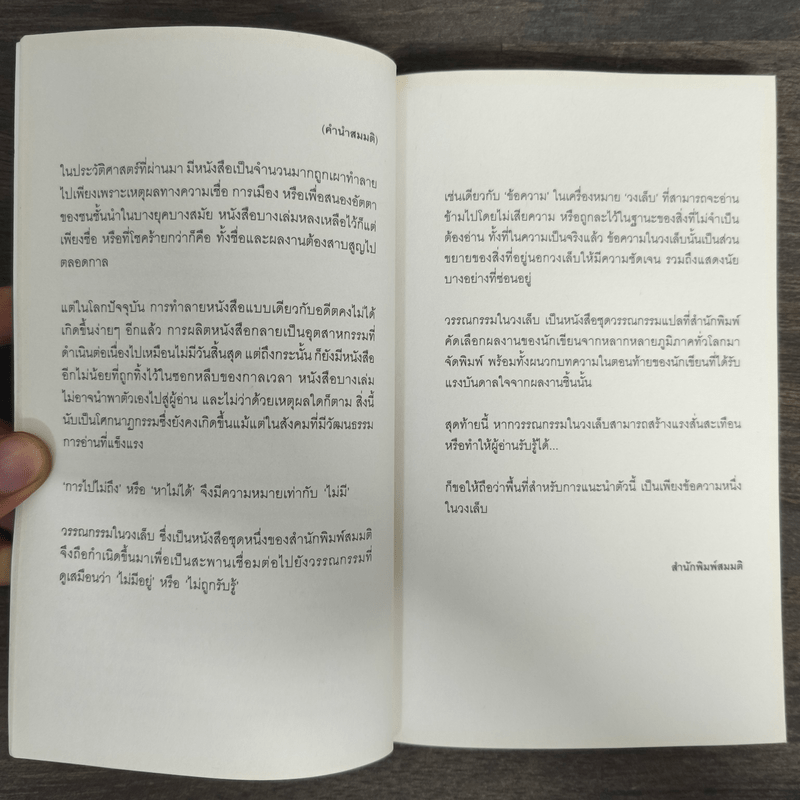 (คำนำสมมติ)
ในประวัติศาสตร์ที่ผ่านมา มีหนังสือเป็นจำนวนมากถูกเผาทำลาย
ไปเพียงเพราะเหตุผลทางความเชื่อ การเมือง หรือเพื่อสนองอัตตา
ของชนชั้นนำในบางยุคบางสมัย หนังสือบางเล่มหลงเหลือไว้ก็แต่
เพียงชื่อ หรือที่โชคร้ายกว่าก็คือ ทั้งชื่อและผลงานต้องสาบสูญไป
ตลอดกาล
แต่ในโลกปัจจุบัน การทำลายหนังสือแบบเดียวกับอดีตคงไม่ได้
เกิดขึ้นง่ายๆ อีกแล้ว การผลิตหนังสือกลายเป็นอุตสาหกรรมที่
ดำเนินต่อเนื่องไปเหมือนไม่มีวันสิ้นสุด แต่ถึงกระนั้น ก็ยังมีหนังสือ
อีกไม่น้อยที่ถูกทิ้งไว้ในซอกหลืบของกาลเวลา หนังสือบางเล่ม
ไม่อาจนำพาตัวเองไปสู่ผู้อ่าน และไม่ว่าด้วยเหตุผลใดก็ตาม สิ่งนี้
นับเป็นโศกนาฏกรรมซึ่งยังคงเกิดขึ้นแม้แต่ในสังคมที่มีวัฒนธรรม
การอ่านที่แข็งแรง
'การไปไม่ถึง' หรือ 'หาไม่ได้' จึงมีความหมายเท่ากับ 'ไม่มี'
วรรณกรรมในวงเล็บ ซึ่งเป็นหนังสือชุดหนึ่งของสำนักพิมพ์สมมติ
จึงถือกำเนิดขึ้นมาเพื่อเป็นสะพานเชื่อมต่อไปยังวรรณกรรมที่
ดูเสมือนว่า 'ไม่มีอยู่' หรือ 'ไม่ถูกรับรู้'
เช่นเดียวกับ 'ข้อความ' ในเครื่องหมาย 'วงเล็บ' ที่สามารถจะอ่าน
ข้ามไปโดยไม่เสียความ หรือถูกละไว้ในฐานะของสิ่งที่ไม่จำเป็น
ต้องอ่าน ทั้งที่ในความเป็นจริงแล้ว ข้อความในวงเล็บนั้นเป็นส่วน
ขยายของสิ่งที่อยู่นอกวงเล็บให้มีความชัดเจน รวมถึงแสดงนัย
บางอย่างที่ซ่อนอยู่
วรรณกรรมในวงเล็บ เป็นหนังสือชุดวรรณกรรมแปลที่สำนักพิมพ์
คัดเลือกผลงานของนักเขียนจากหลากหลายภูมิภาคทั่วโลกมา
จัดพิมพ์ พร้อมทั้งผนวกบทความในตอนท้ายของนักเขียนที่ได้รับ
แรงบันดาลใจจากผลงานชิ้นนั้น
สุดท้ายนี้ หากวรรณกรรมในวงเล็บสามารถสร้างแรงสั่นสะเทือน
หรือทำให้ผู้อ่านรับรู้ได้...
ก็ขอให้ถือว่าพื้นที่สำหรับการแนะนำตัวนี้ เป็นเพียงข้อความหนึ่ง
ในวงเล็บ
สำนักพิมพ์สมมติ